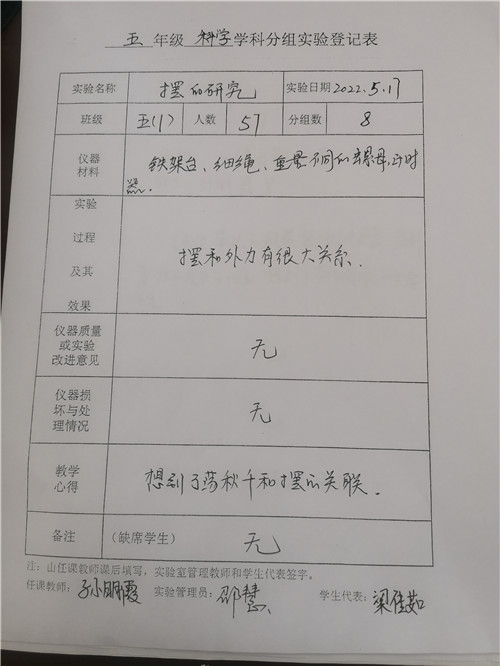 五 年级 科学 学科分组实验登记表
实验名称 摆的研究 实验日期 2022.5.17
班级 五(1) 人数 57 分组数 8
仪器 铁架台、细绳、重量不同的螺母,计时
材料 器.
实验
过程
及其 摆和外力有很大关系.
效果
仪器质量
或实验 无
改进意见
仪器损
坏与处 无
理情况
教学
心得 想到了荡秋千和摆的关联.
备注 (缺席学生) 无
注:由任课教师课后填写,实验室管理教师和学生代表签字。
任课教师: 孙明霞 实验管理员: 邵慧 学生代表: 梁佳茹